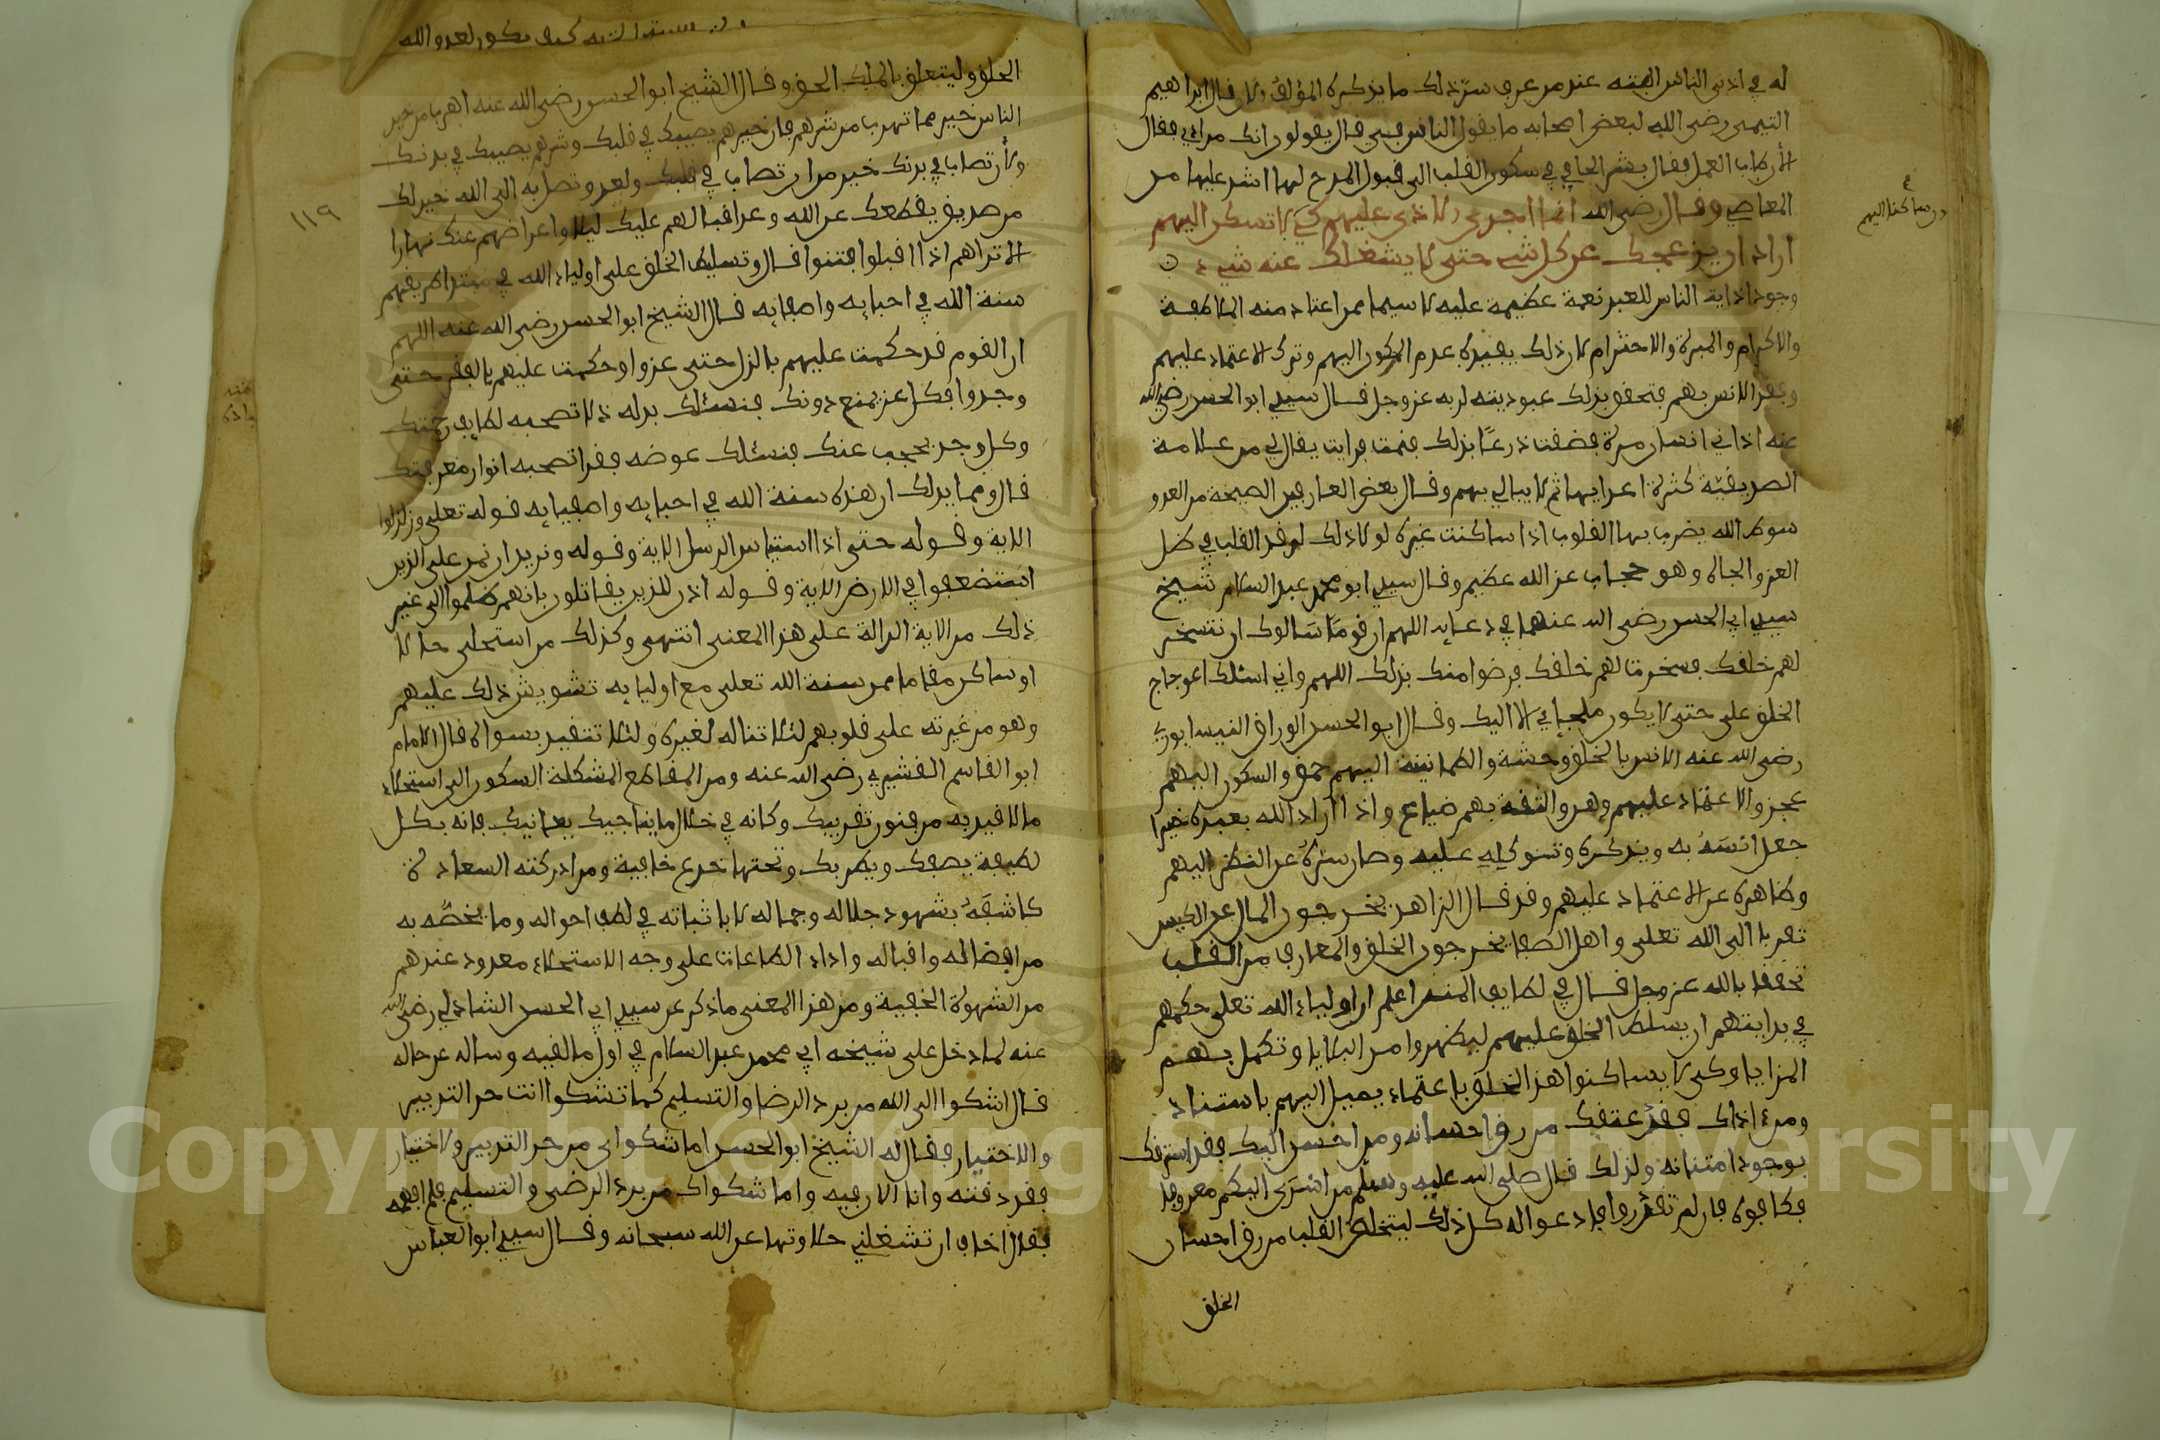 له في اذى الناس الفتنه عند من عرف سر ذلك ما يذكره المؤلف الان قال ابراهيم
التيمى رضى الله لبعض اصحابه ما يقول الناس في قال يقولون انك مراءي فقال
الان طاب العمل فقال بشر الحافي في سكون القلب الى قبول المدح لها اشد عليها من
المعاصي وقال رضى الله انما اجرى الاذى عليهم كي لا تسكن اليهم
اراد ان يزعجك عن كل شيء حتى لا يشغلك عنه شيء
وجود اذاية الناس للعبد نعمة عظيمة عليه لا سيما ممن اعتاد منه الملاطفة
والاكرام والمبرة والاحترام لان ذلك يفيده عدم الركون اليهم وترك الاعتماد عليهم
وفقد الانس بهم فتحقق بذلك عبوديته لربه عز وجل قال سيدي ابو الحسن رضى الله
عنه اذاني انسان مرة فضقت ذرعا بذلك فنمت فرايت يقال لي من علامة
الصديقية كثرة اعدايها ثم لا يبالي بهم وقال بعض العارفين الصيحة من العدو
سوط الله يضرب بها القلوب اذا ساكنت غيره لولا ذلك لرقد القلب في ظل
العز والجاه وهو حجاب عن الله عظيم وقال سيدي ابو محمد عبد السلام شيخ
سيدي ابي الحسن رضى الله عنهما في دعايه اللهم ان قوما سالوك ان تسخر
لهم خلقك فسخرت لهم خلقك فرضوا منك بذلك اللهم واني اسئلك اعوجاج
الخلق على حتى لا يكون ملجإي الا اليك وقال ابو الحسن الوراق النيسابوري
رضى الله عنه الانس بالخلق وحشة والطمانينة اليهم حمق والسكون اليهم
عجز والاعتماد عليهم وهن والثقة بهم ضياع واذا اراد الله بعبده خيرا
جعل انسه به وبذكره وتوكله عليه وصان سره عن النظر اليهم
وظاهره عن الاعتماد عليهم وقد قال الزاهد يخرجون المال عن الكيس
تقربا الى الله تعلى واهل الصفا يخرجون الخلق والمعارف من القلب
تحققا بالله عز وجل قال في لطايف المنن اعلم ان اولياء الله تعلى حكمهم
في بدايتهم ان يسلط الخلق عليهم ليطهروا من البقايا وتكمل بهم
المزايا وكى لا يساكنوا هذا الخلق باعتماد يميل اليهم باستناد
ومن اذاك فقد عتقك من رق احسانه ومن احسن اليك فقد استرقك
بوجود امتنانه ولذلك قال صلى الله عليه وسلم من اسدى اليكم معروفا
فكافوه فان لم تقدروا فادعوا له كل ذلك ليتخلص القلب من رق احسان
الخلق
١١٩
الخلق وليتعلق بالملك الحق وقال الشيخ ابو الحسن رضى الله عنه اهرب من خير
الناس خير مما تهرب من شرهم فان خيرهم يصيبك في قلبك وشرهم يصيبك في بدنك
ولأن تصاب في بدنك خير من ان تصاب في قلبك ولعدو تصل به الى الله خير لك
من صديق يقطعك عن الله وعد اقبالهم عليك ليلا واعراضهم عنك نهارا
الا تراهم اذا اقبلوا فتنوا قال وتسليط الخلق على اولياء الله في مبتدا طريقهم
سنة الله في احبابه واصفيايه قال الشيخ ابو الحسن رضى الله عنه اللهم
ان القوم قد حكمت عليهم بالذل حتى عزوا وحكمت عليهم بالفقد حتى
وجدوا فكل عز يمنع دونك فنسئلك بدله ذلا تصحبه لطايف رحمتك
وكل وجد يحجب عنك فنسئلك عوضه فقدا تصحبه انوار معرفتك
قال ومما يدلك ان هذه سنة الله في احبابه واصفيايه قوله تعلى وزلزلوا
الاية وقوله حتى اذا استياس الرسل الاية وقوله ونريد ان نمن على الذين
استضعفوا في الارض الاية وقوله اذن للذين يقاتلون بانهم ظلموا الى غير
ذلك من الاية الدالة على هذا المعنى انتهى وكذلك من استحلى حالا
او ساكن مقاما من سنة الله تعلى مع اوليايه تشويش ذلك عليهم
وهو من غيرته على قلوبهم لئلا تناله لغيره ولئلا تتقيد بسواه قال الامام
ابو القاسم القشيري رضى الله عنه ومن المقاطع المشكلة السكون الى استحلاء
ما لاقيد به من فنون تقريبك وكانه في خلال ما يناجيك يعانيك فانه بكل
لطيفة يصفك ويطربك وتحتها خدع خافية ومن ادركته السعادة
كاشفه بشهود جلاله وجماله لا باثباته في لطف احواله وما يخصه به
من افضاله واقباله واداء الطاعات على وجه الاستحلاء معدود عندهم
من الشهوة الخفية ومن هذا المعنى ما ذكر عن سيدي ابي الحسن الشاذلي رضى الله
عنه لما دخل على شيخه ابي محمد عبد السلام في اول ما لقيه وساله عن حاله
قال اشكوا الى الله من برد الرضا والتسليم كما تشكوا انت حر التدبير
والاختيار فقال له الشيخ ابو الحسن اما شكواى من حر التدبير والاختيار
فقد ذقته وانا الان فيه واما شكواك من برد الرضى والتسليم فلم افهمه
فقال اخاف ان تشغلني حلاوتها عن الله سبحانه وقال سيدي ابو العباس